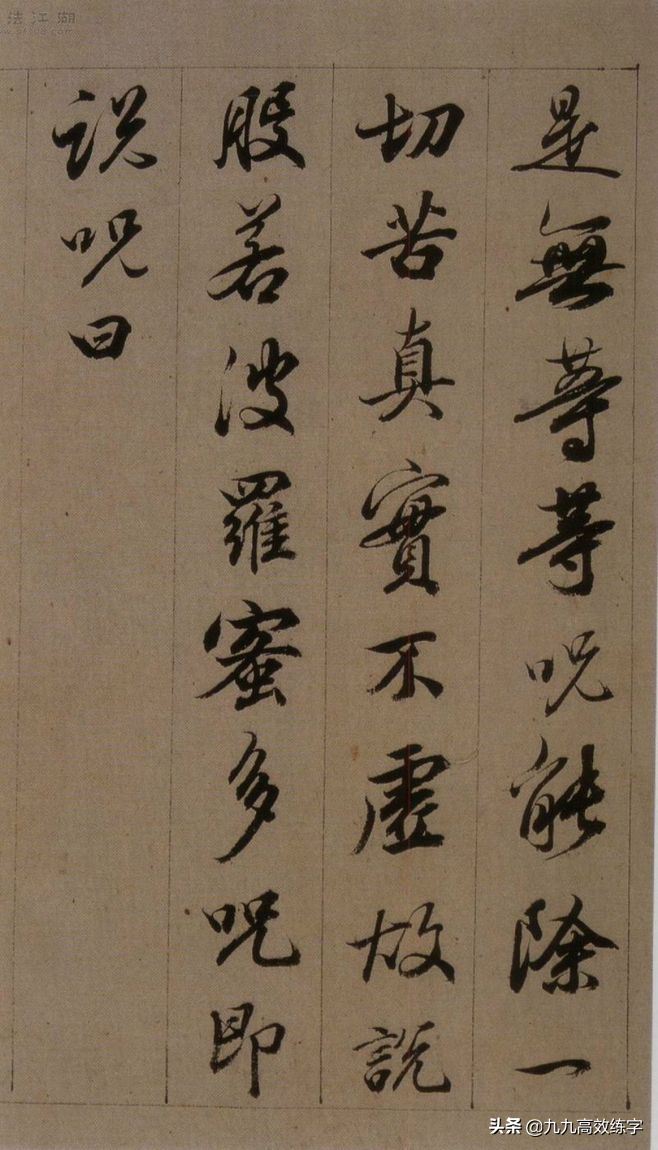 是無等等呪能除一
切苦真實不虛故說
般若波羅蜜多呪即
說呪曰
法江湖
头条 @九九高效练字